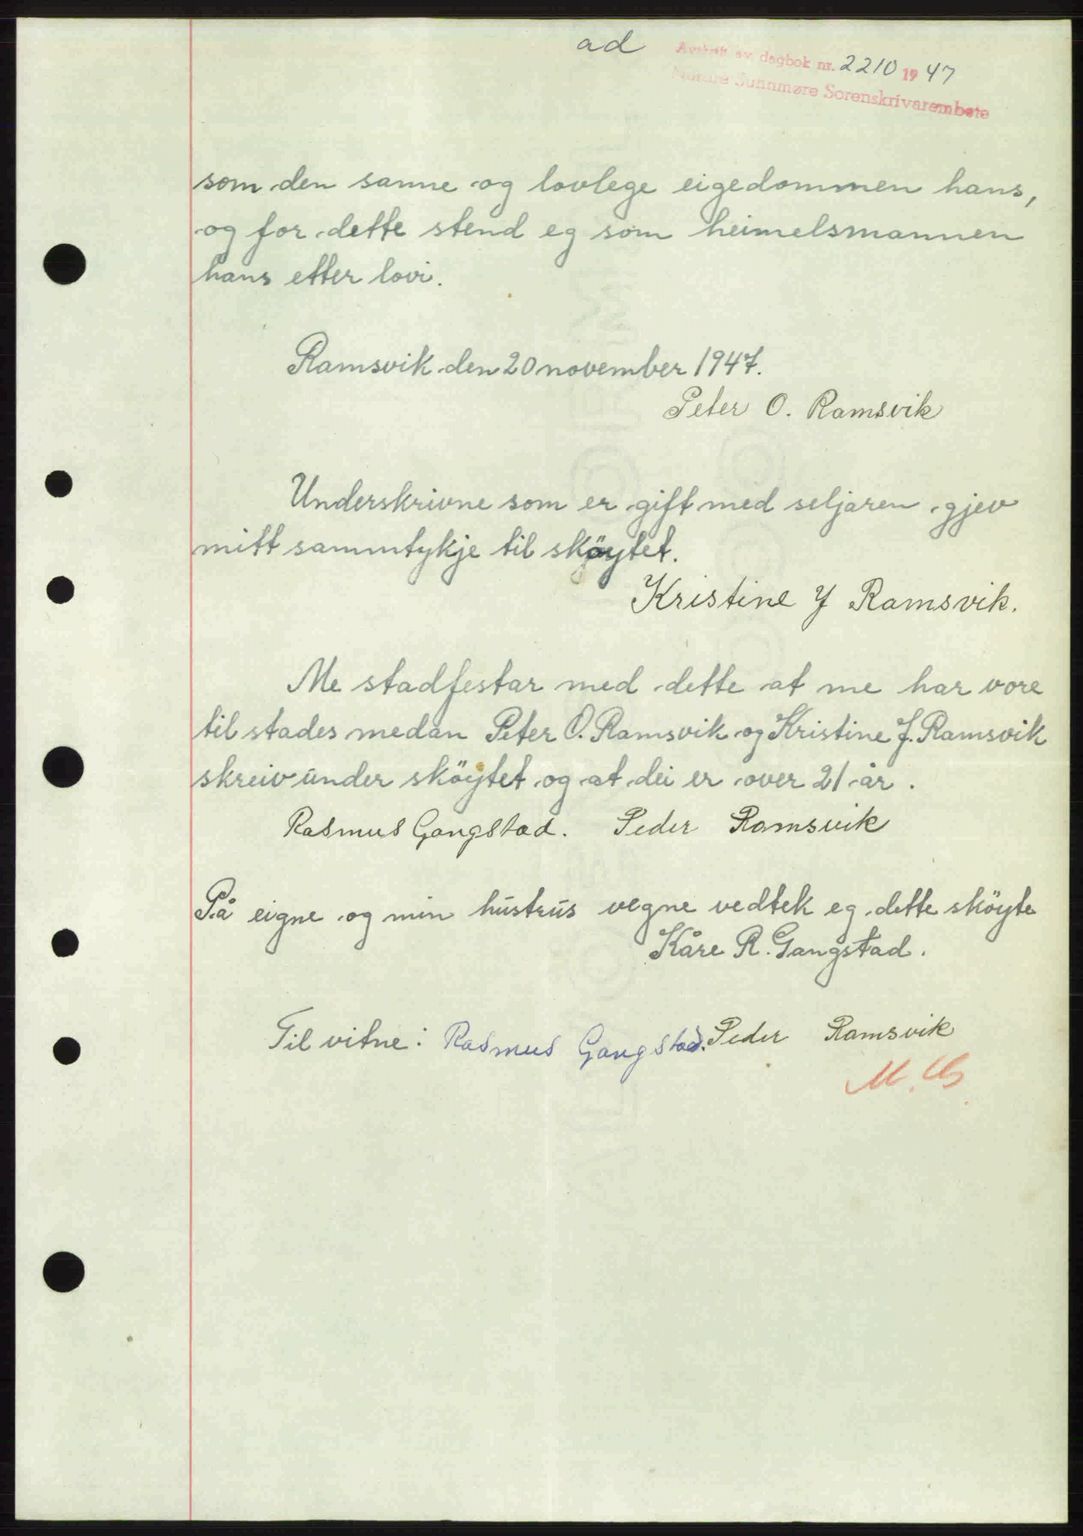 ad
Avskrift av dagbok nr. 2210 1947
Nordre Sunnmøre Sorenskrivarembete
som den sanne og lovlege eigedommen hans,
og for dette stend eg som heimelsmannen
hans etter lovi.
Ramsvik den 20 november 1947.
Peter O. Ramsvik
Underskrivne som er gift med seljaren, gjev
mitt sammtykje til sköytet.
Kristine J Ramsvik.
Me stadfestar med dette at me har vore
til stades medan Peter O. Ramsvik og Kristine J. Ramsvik
skreiv under sköytet og at dei er over 21 år.
Rasmus Gangstad. Peder Ramsvik
På eigne og min hustrus vegne vedtek eg dette sköyte
Kåre R. Gangstad.
Til vitne: Rasmus Gangstad. Peder Ramsvik